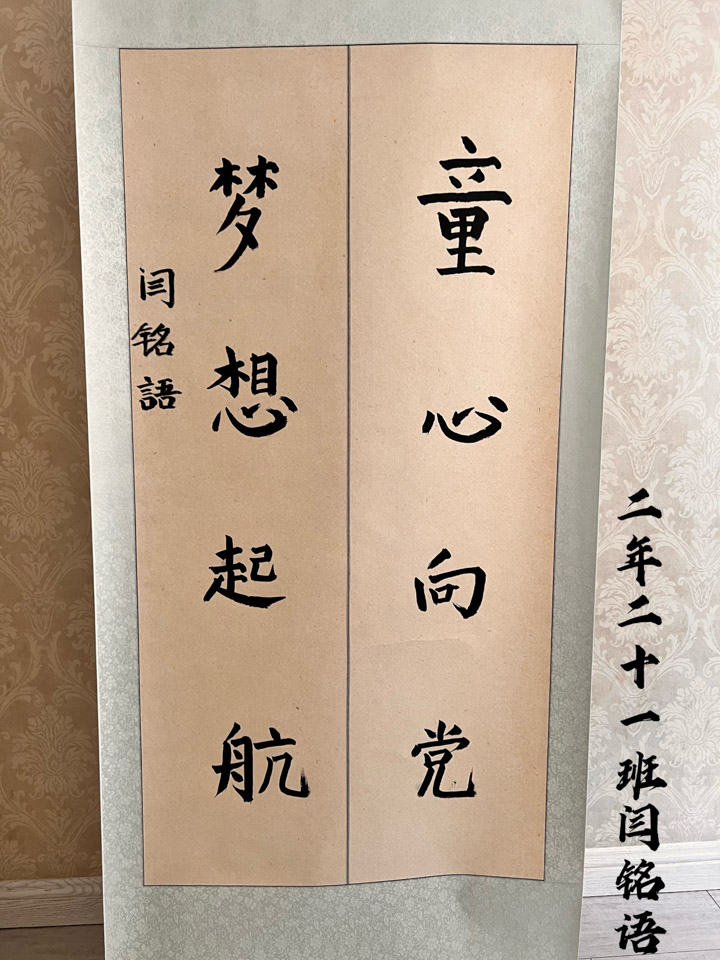 童心向党
梦想起航
闫铭語
二年二十一班闫铭语